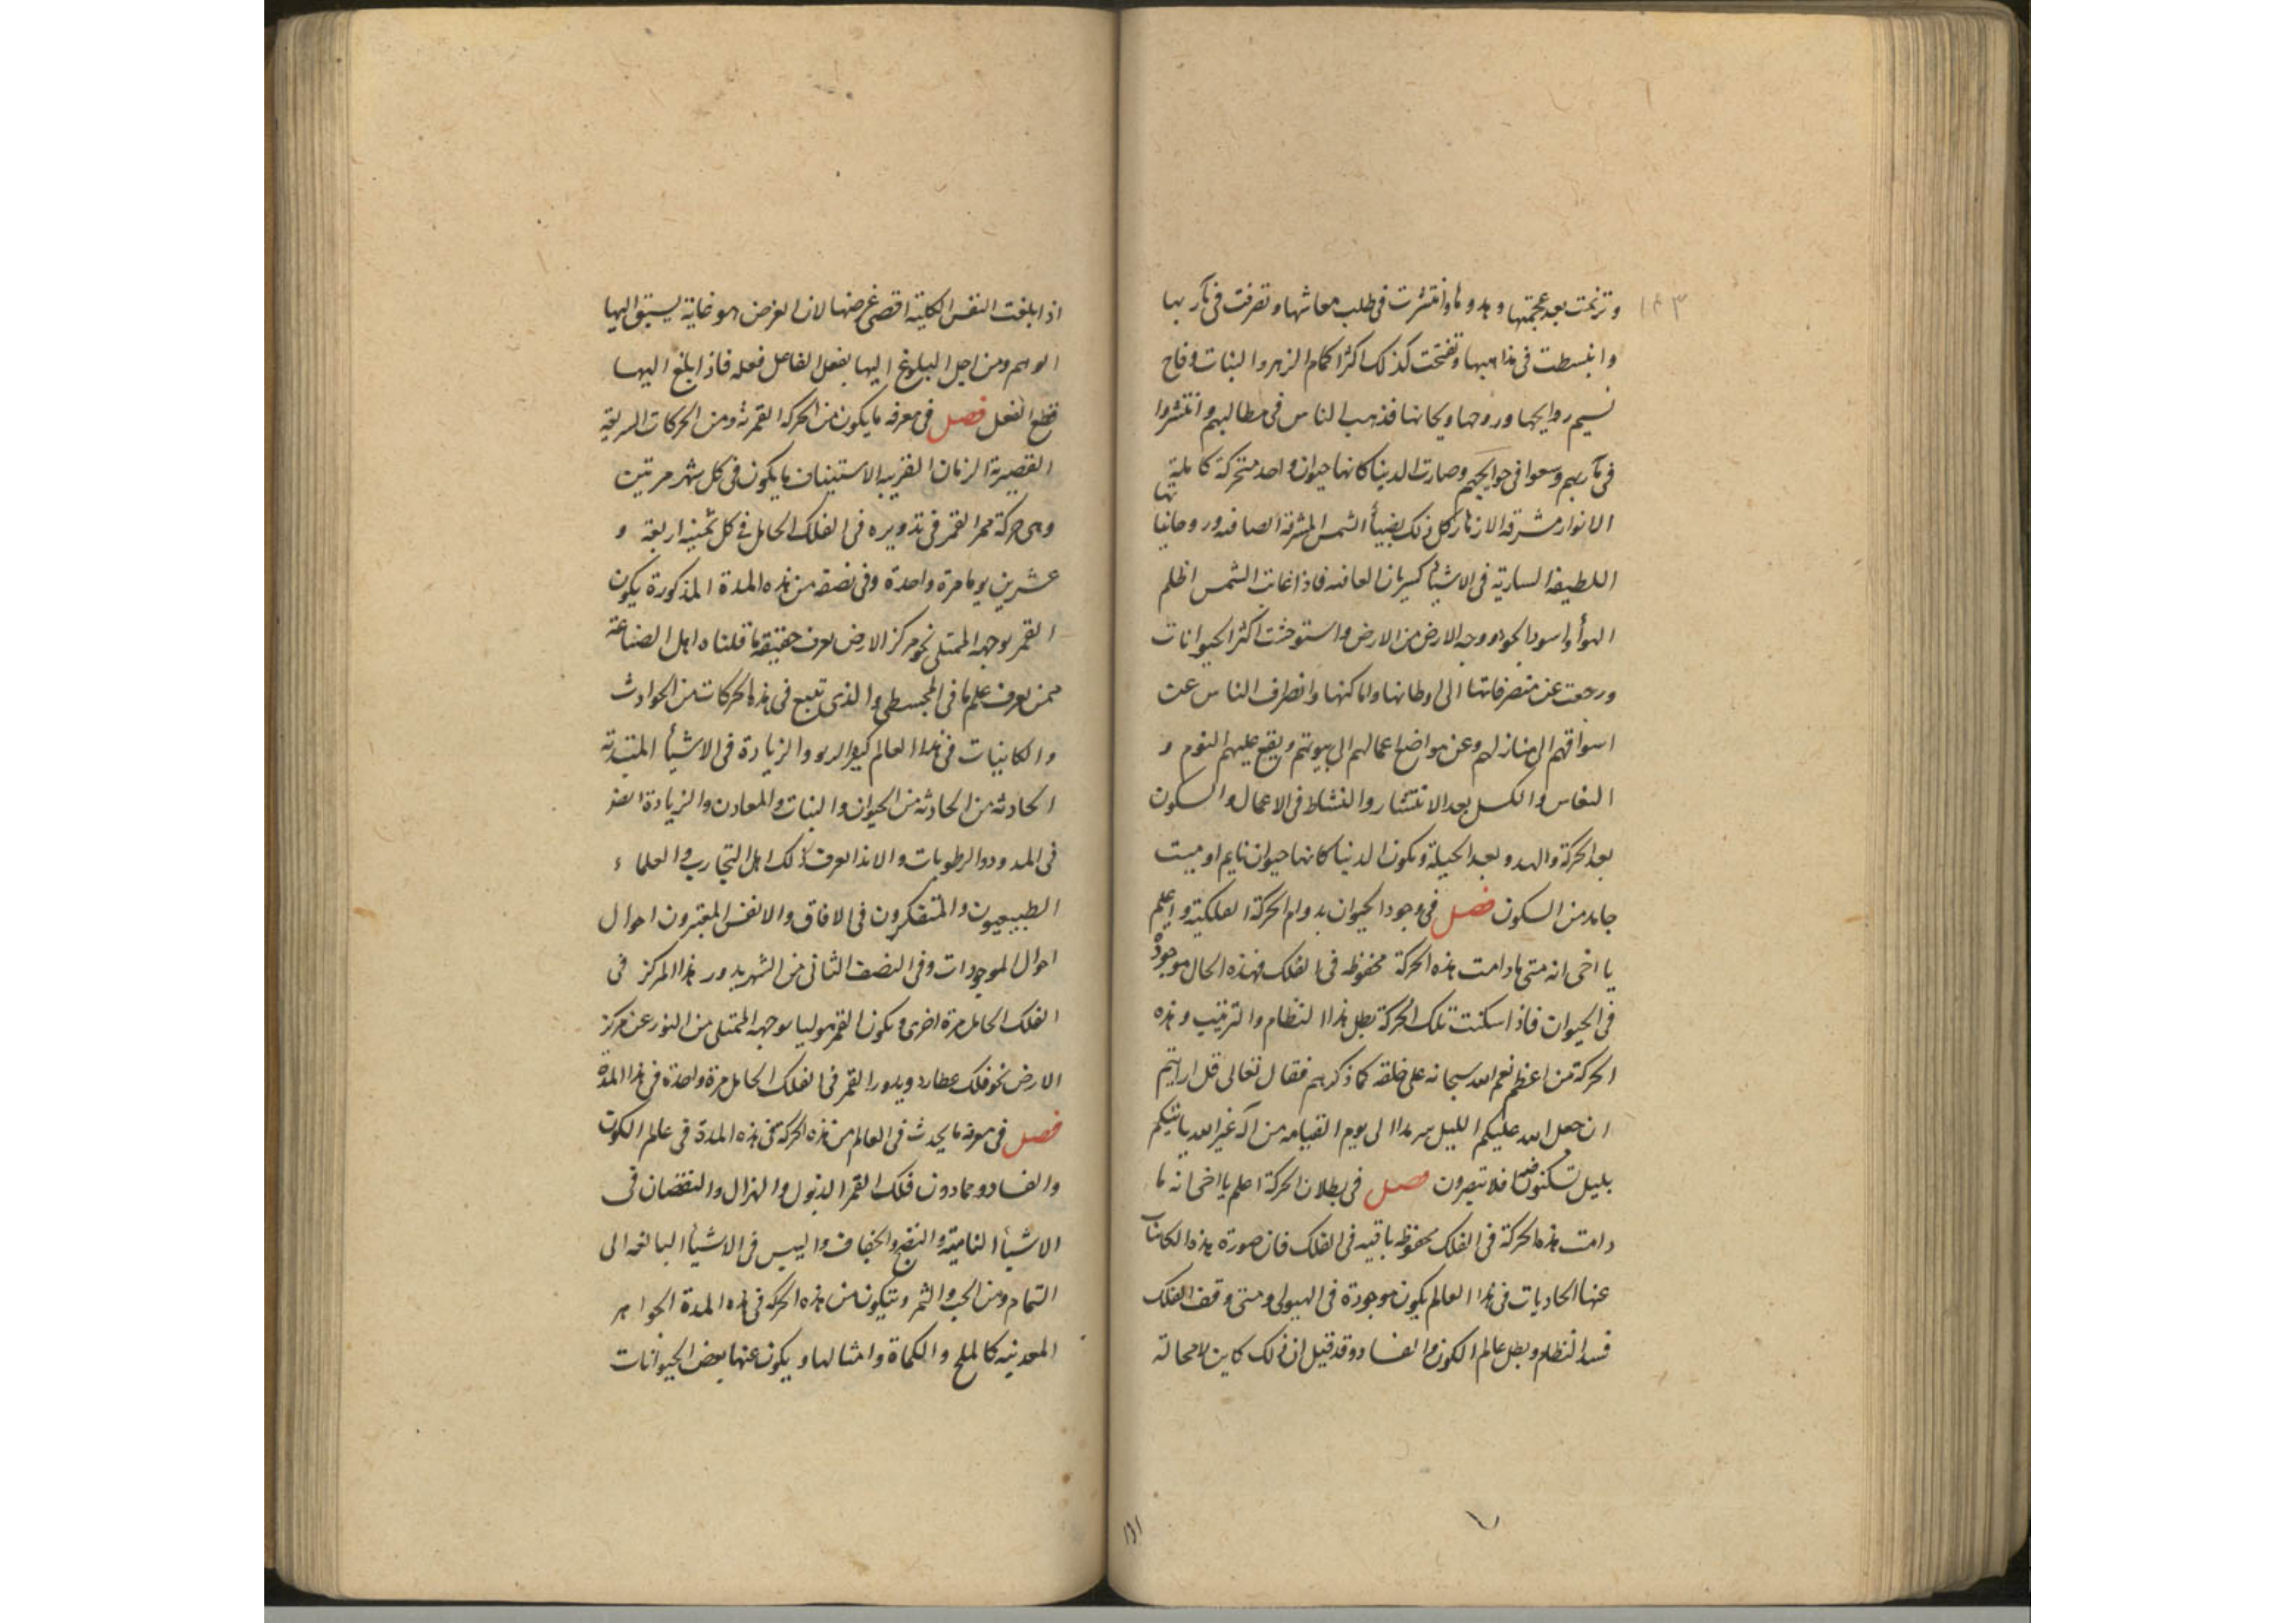 وترنمت بعد عجمتها وهدوها وانتشرت فى طلب معاشها وتصرفت فى مآربها
وانبسطت فى مذاهبها وتفتحت كذلك اكثر اكمام الزهر والنبات وفاح
نسيم روايحها وروحها وريحانها فذهب الناس فى مطالبهم وانتشروا
فى مآربهم وسعوا فى حوايجهم وصارت الدنيا كانها حيوان واحد متحركة كاملة
الانوار مشرقة الازهار كل ذلك بضياء الشمس المشرقة الصافية وروحانيتها
اللطيفة السارية فى الاشياء كسريان العافيه فاذا غابت الشمس اظلم
الهوأ واسود الجو ووجه الارض من الارض واستوحشت اكثر الحيوانات
ورجعت عن متصرفاتها الى اوطانها واماكنها وانصرف الناس عن
اسواقهم الى منازلهم وعن مواضع اعمالهم الى بيوتهم ويقع عليهم النوم و
النعاس والكسل بعد الانتشار والنشاط فى الاعمال والسكون
بعد الحركة والهدو بعد الحيلة ويكون الدنيا كانها حيوان نايم او ميت
جامد من السكون فصل فى وجود الحيوان بدوام الحركة الفلكية واعلم
يا اخى انه متى مادامت هذه الحركة محفوظه فى الفلك فهذه الحال موجودة
فى الحيوان فاذا سكنت تلك الحركة بطل هذا النظام والترتيب وهذه
الحركة من اعظم نعم الله سبحانه على خلقه كما ذكرهم فقال تعالى قل ارايتم
ان جعل الله عليكم الليل سرمدا الى يوم القيامه من اله غير الله ياتيكم
بليل تسكنون فيه افلا تبصرون فصل فى بطلان الحركة اعلم يا اخى انه ما
دامت هذه الحركة فى الفلك محفوظه باقيه فى الفلك فان صورة هذه الكاينات
عنها الحادثات فى هذا العالم يكون موجودة فى الهيولى ومتى وقف الفلك
فسد النظام وبطل عالم الكون والفساد وقد قيل ان ذلك كاين لا محالة
اذا بلغت النفس الكلية اقصى غرضها لان الغرض هو غاية يسبق اليها
الوهم ومن اجل البلوغ اليها يفعل الفاعل فعله فاذا بلغ اليها
قطع الفعل فصل فى معرفه ما يكون من الحركة القمرية ومن الحركات السريعة
القصيرة الزمان القريبه الاستيناف ما يكون فى كل شهر مرتين
وهى حركة القمر فى تدويره فى الفلك الحامل فى كل ثمنيه اربعة و
عشرين يوما مرة واحدة وفى نصف من هذه المدة المذكورة يكون
القمر بوجهه الممتلى نحو مركز الارض يعرف حقيقة ما قلناه اهل الصناعة
ممن يعرف علم ما فى المجسطى والذى يتبع فى هذه الحركات من الحوادث
والكاينات فى هذا العالم الربو والزيادة فى الاشيأ المبتدئة
الحادثه من الحادثه من الحيوان والنبات والمعادن والزيادة ايضا
فى المدود والرطوبات والاندا يعرف ذلك اهل التجارب والعلماء
الطبيعيون والمتفكرون فى الافاق والانفس المعتبرون احوال
احوال الموجودات وفى النصف الثانى من الشهر يدور هذا المركز فى
الفلك الحامل مرة اخرى ويكون القمر موليا بوجهه الممتلى من النور عن مركز
الارض نحو فلك عطارد ويدور القمر فى الفلك الحامل مرة واحدة فى هذا المدة
فصل فى معرفه ما يحدث فى العالم من هذه الحركة فى هذه المدة فى عالم الكون
والفساد ومما دون فلك القمر الذبول والهزال والنقصان فى
الاشيأ النامية والنضج والجفاف واليبس فى الاشيأ البالغه الى
التمام ومن الحب والثمر ويتكون من هذه الحركة فى هذه المدة الجواهر
المعدنيه كالملح والكماة وامثالها ويكون عنها بعض الحيوانات